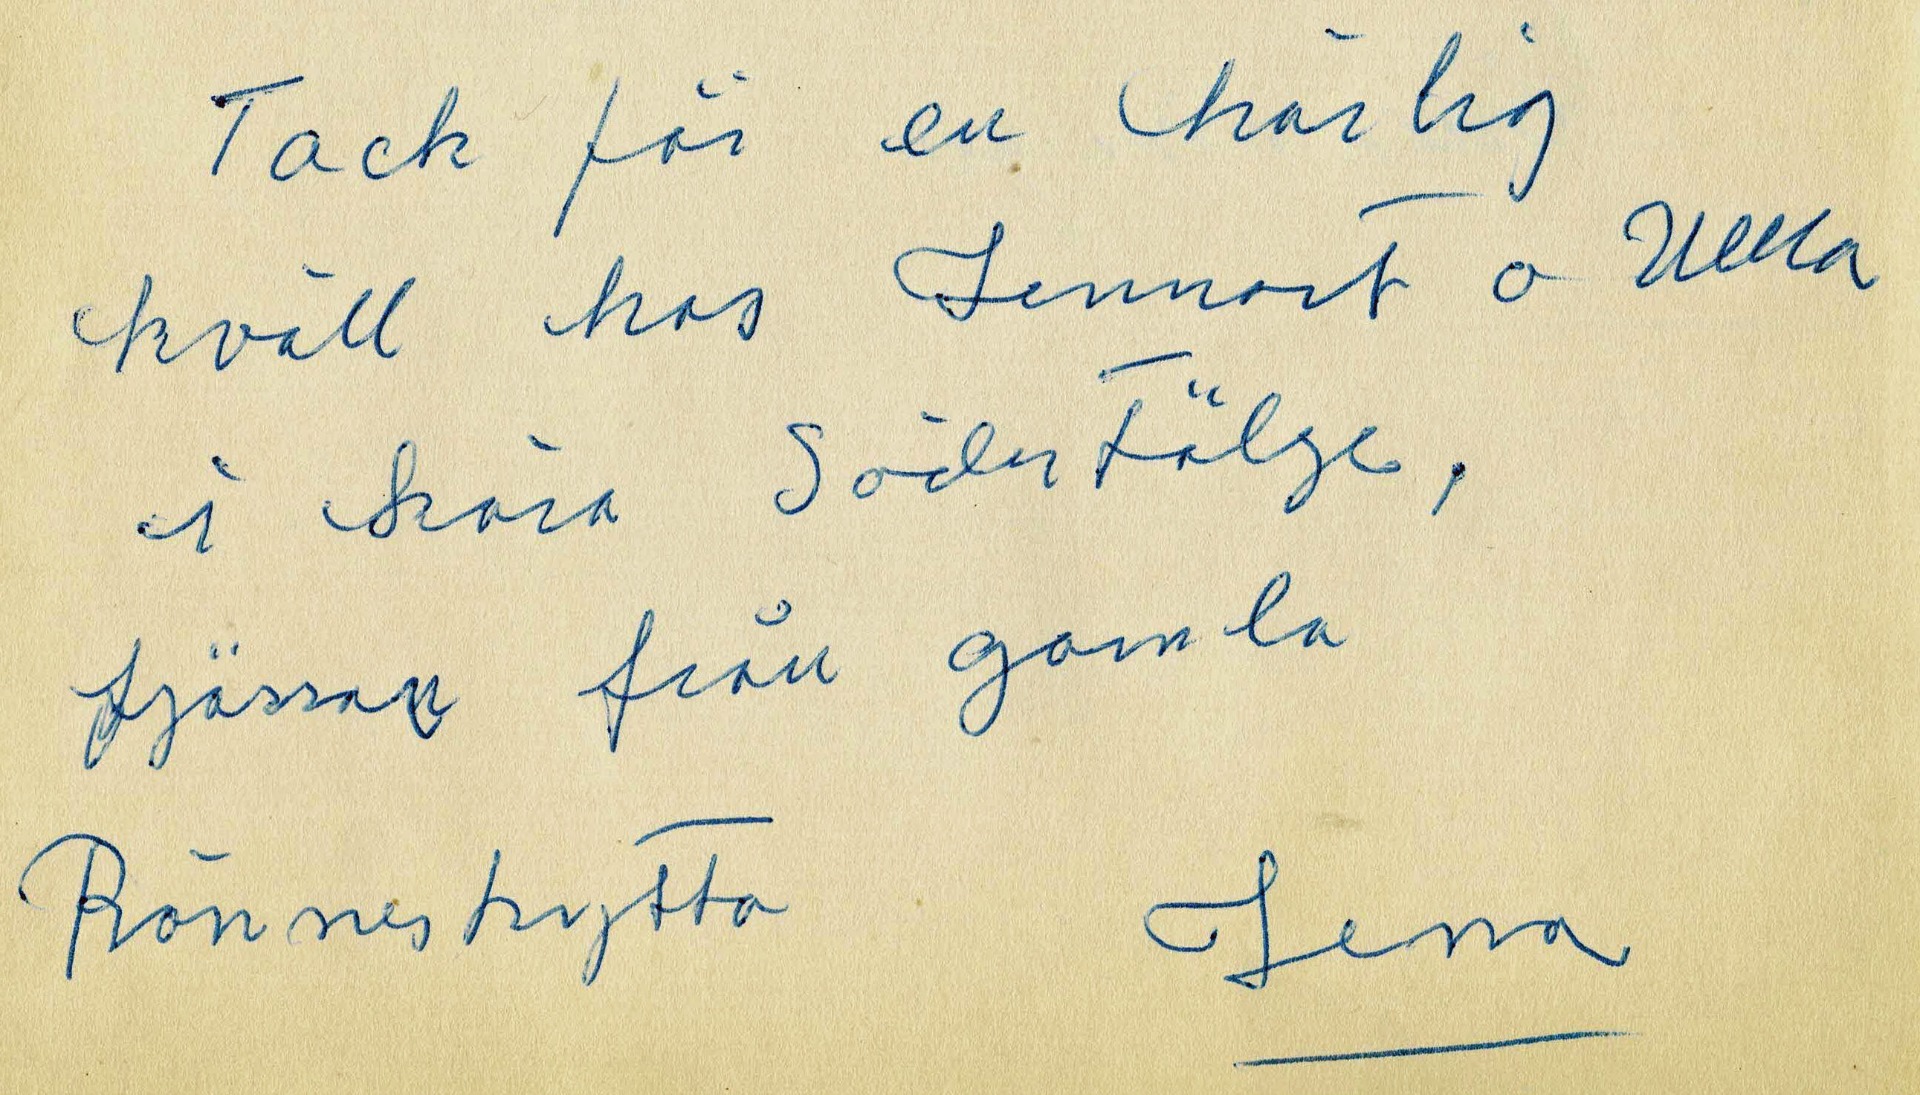 Tack för en härlig
kväll hos Lennart o Ulla
i kära Södertälge,
fjässan från gamla
Rönneshytta Lena